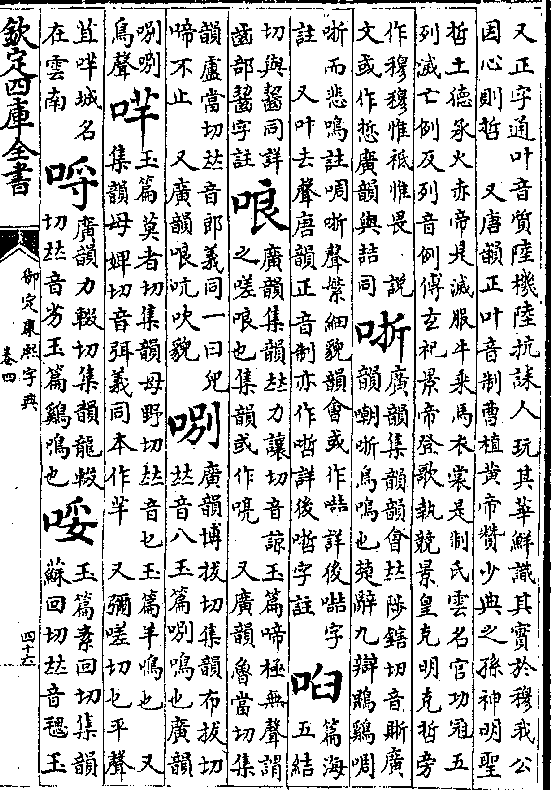 又正字通叶音質陸機陸抗誄人玩其華鮮識其實於穆我公
因心則哲　又唐韻正叶音制曹植黄帝贊少典之孫神明聖
哲土德承火赤帝是滅服牛乘馬衣裳是制氏雲名官功冠五
列滅亡例反列音例傅玄祀景帝登歌執競景皇克明克哲旁
作穆穆惟祗惟畏　說
文或作悊廣韻與喆同
哳
廣韻集韻韻會𠀤陟鎋切音哳廣
韻嘲哳鳥鳴也楚辭九辯鵾鷄啁
哳而悲鳴註啁哳聲繁細貌韻會或作㗭詳後㗭字
註　又叶去聲唐韻正音制亦作㗭詳後㗭字註
㖠
篇海
五結
切與齧同詳
齒部齧字註
哴
廣韻集韻𠀤力讓切音諒玉篇啼極無聲謂
之嗟哴也集韻或作喨　又廣韻魯當切集
韻盧當切𠀤音郎義同一曰兒
啼不止　又廣韻哴吭吹貌
哵
廣韻博拔切集韻布拔切
𠀤音八玉篇哵鳴也廣韻
哵哵
鳥聲
哶
玉篇莫者切集韻母野切𠀤音乜玉篇羊鳴也　又
集韻母婢切音弭義同本作芈　又彌嗟切乜平聲
苴哶城名
在雲南
哷
廣韻力輟切集韻龍輟
切𠀤音劣玉篇鷄鳴也
哸
玉篇素回切集韻
蘇回切𠀤音毸玉
欽定四庫全書
御定康熙字典
卷四
四十六